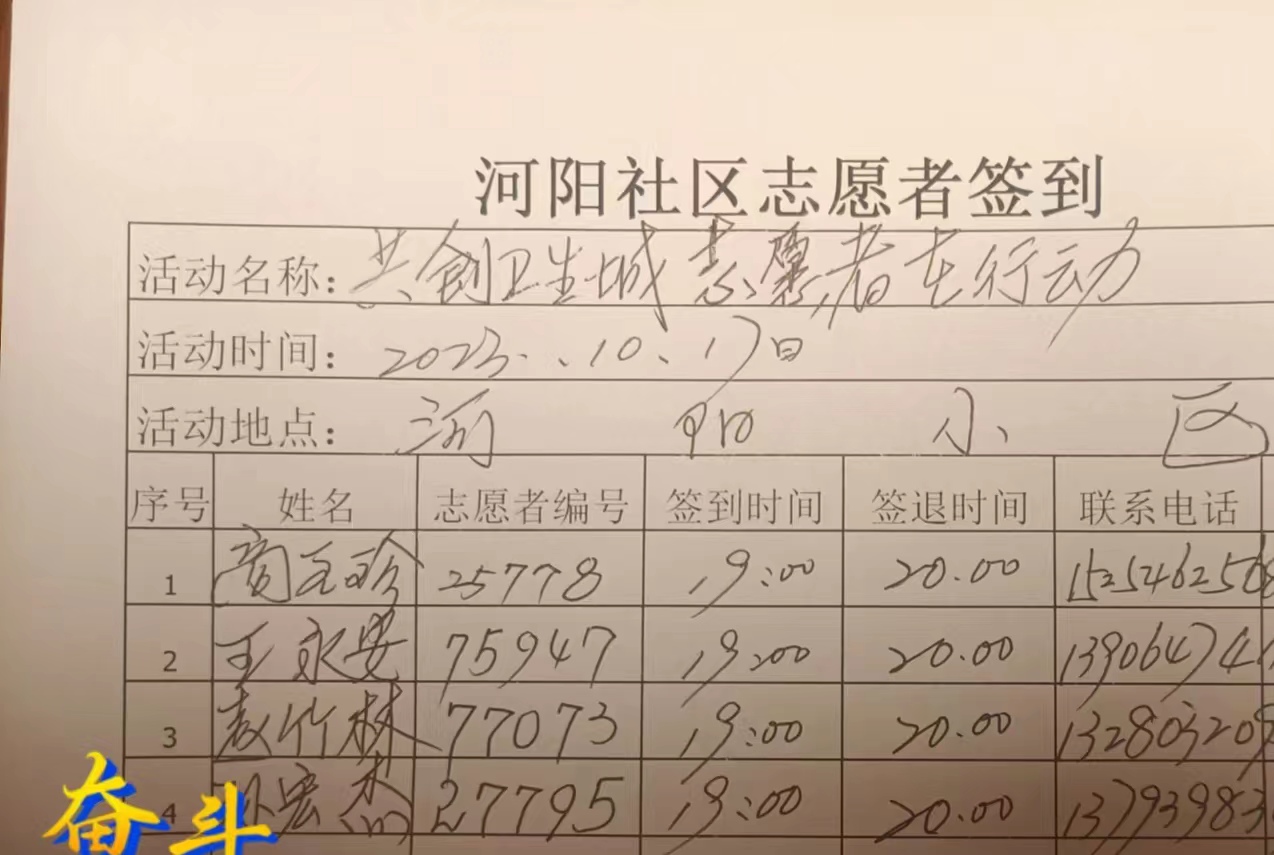 河阳社区志愿者签到
活动名称：共创卫生城志愿者在行动
活动时间：2023..10.17日
活动地点：河阳小区
序号 姓名 志愿者编号 签到时间 签退时间 联系电话
1 25778 19:00 20.00 1525462568
2 王永安 75947 19:00 20.00 139064741
3 赵竹林 77073 19:00 20.00 132803209
4 宏杰 27795 19:00 20.00 13793983
奋斗